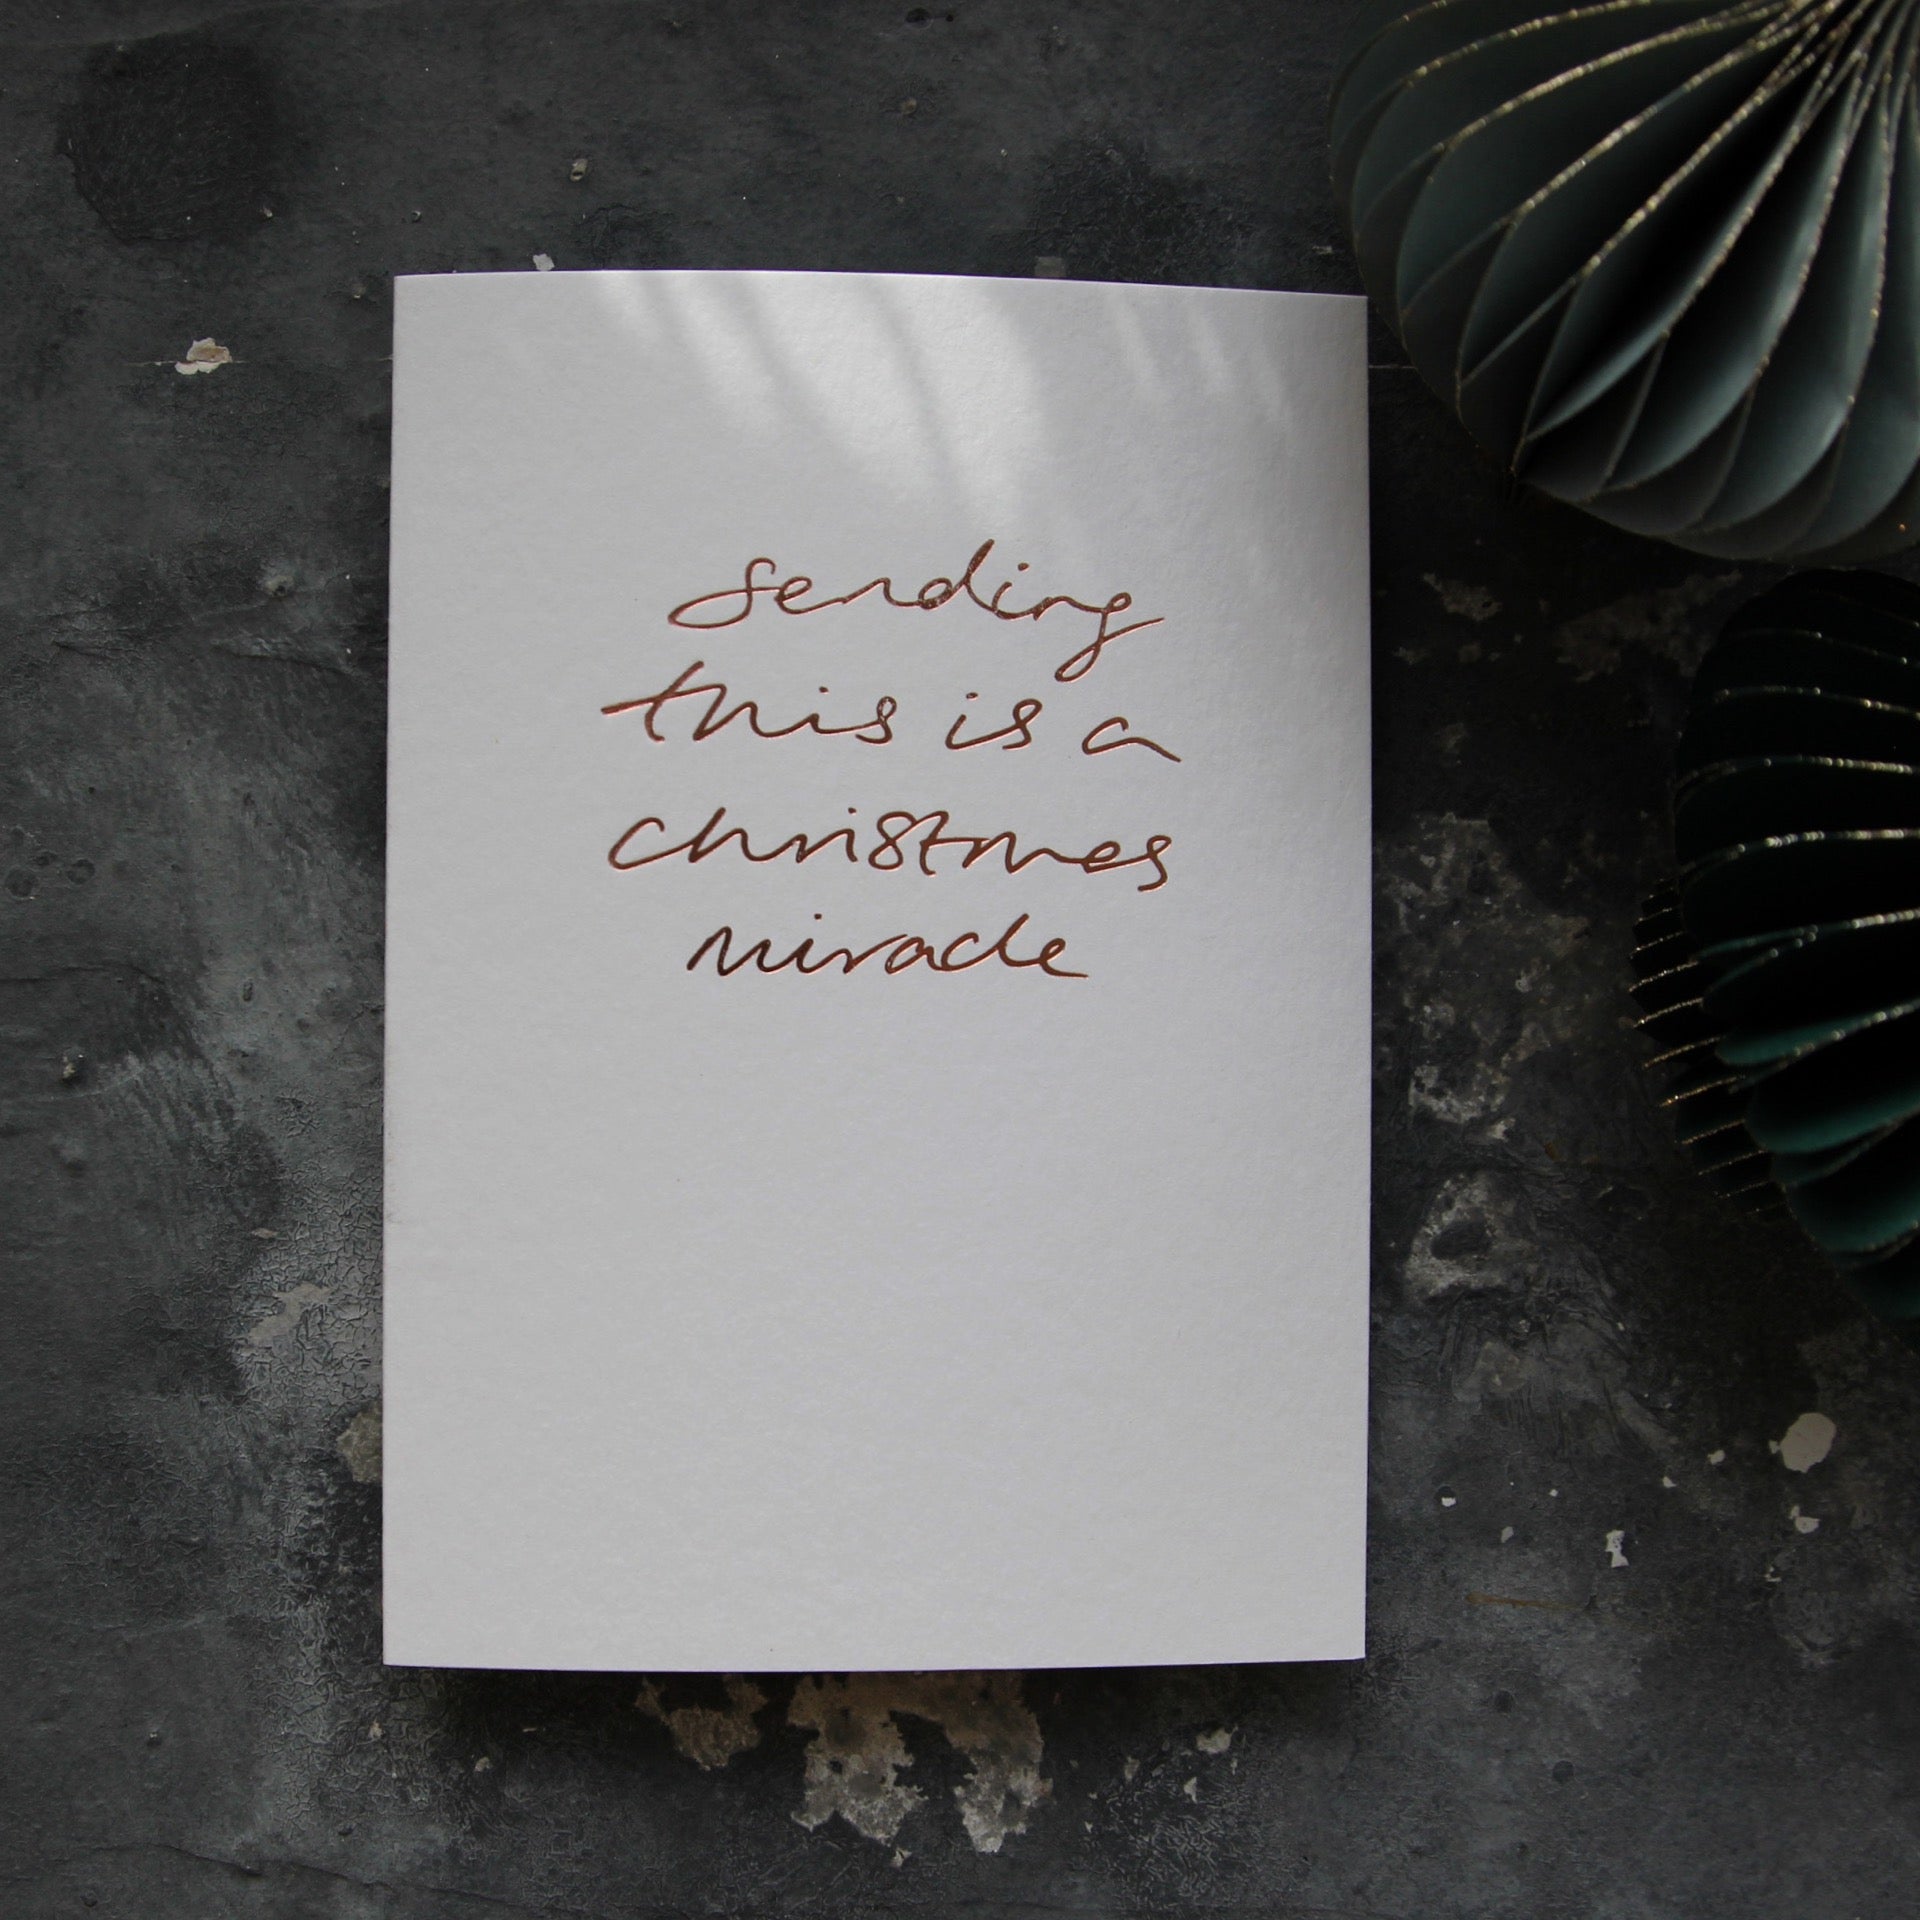 sending
this is a
christmas
miracle